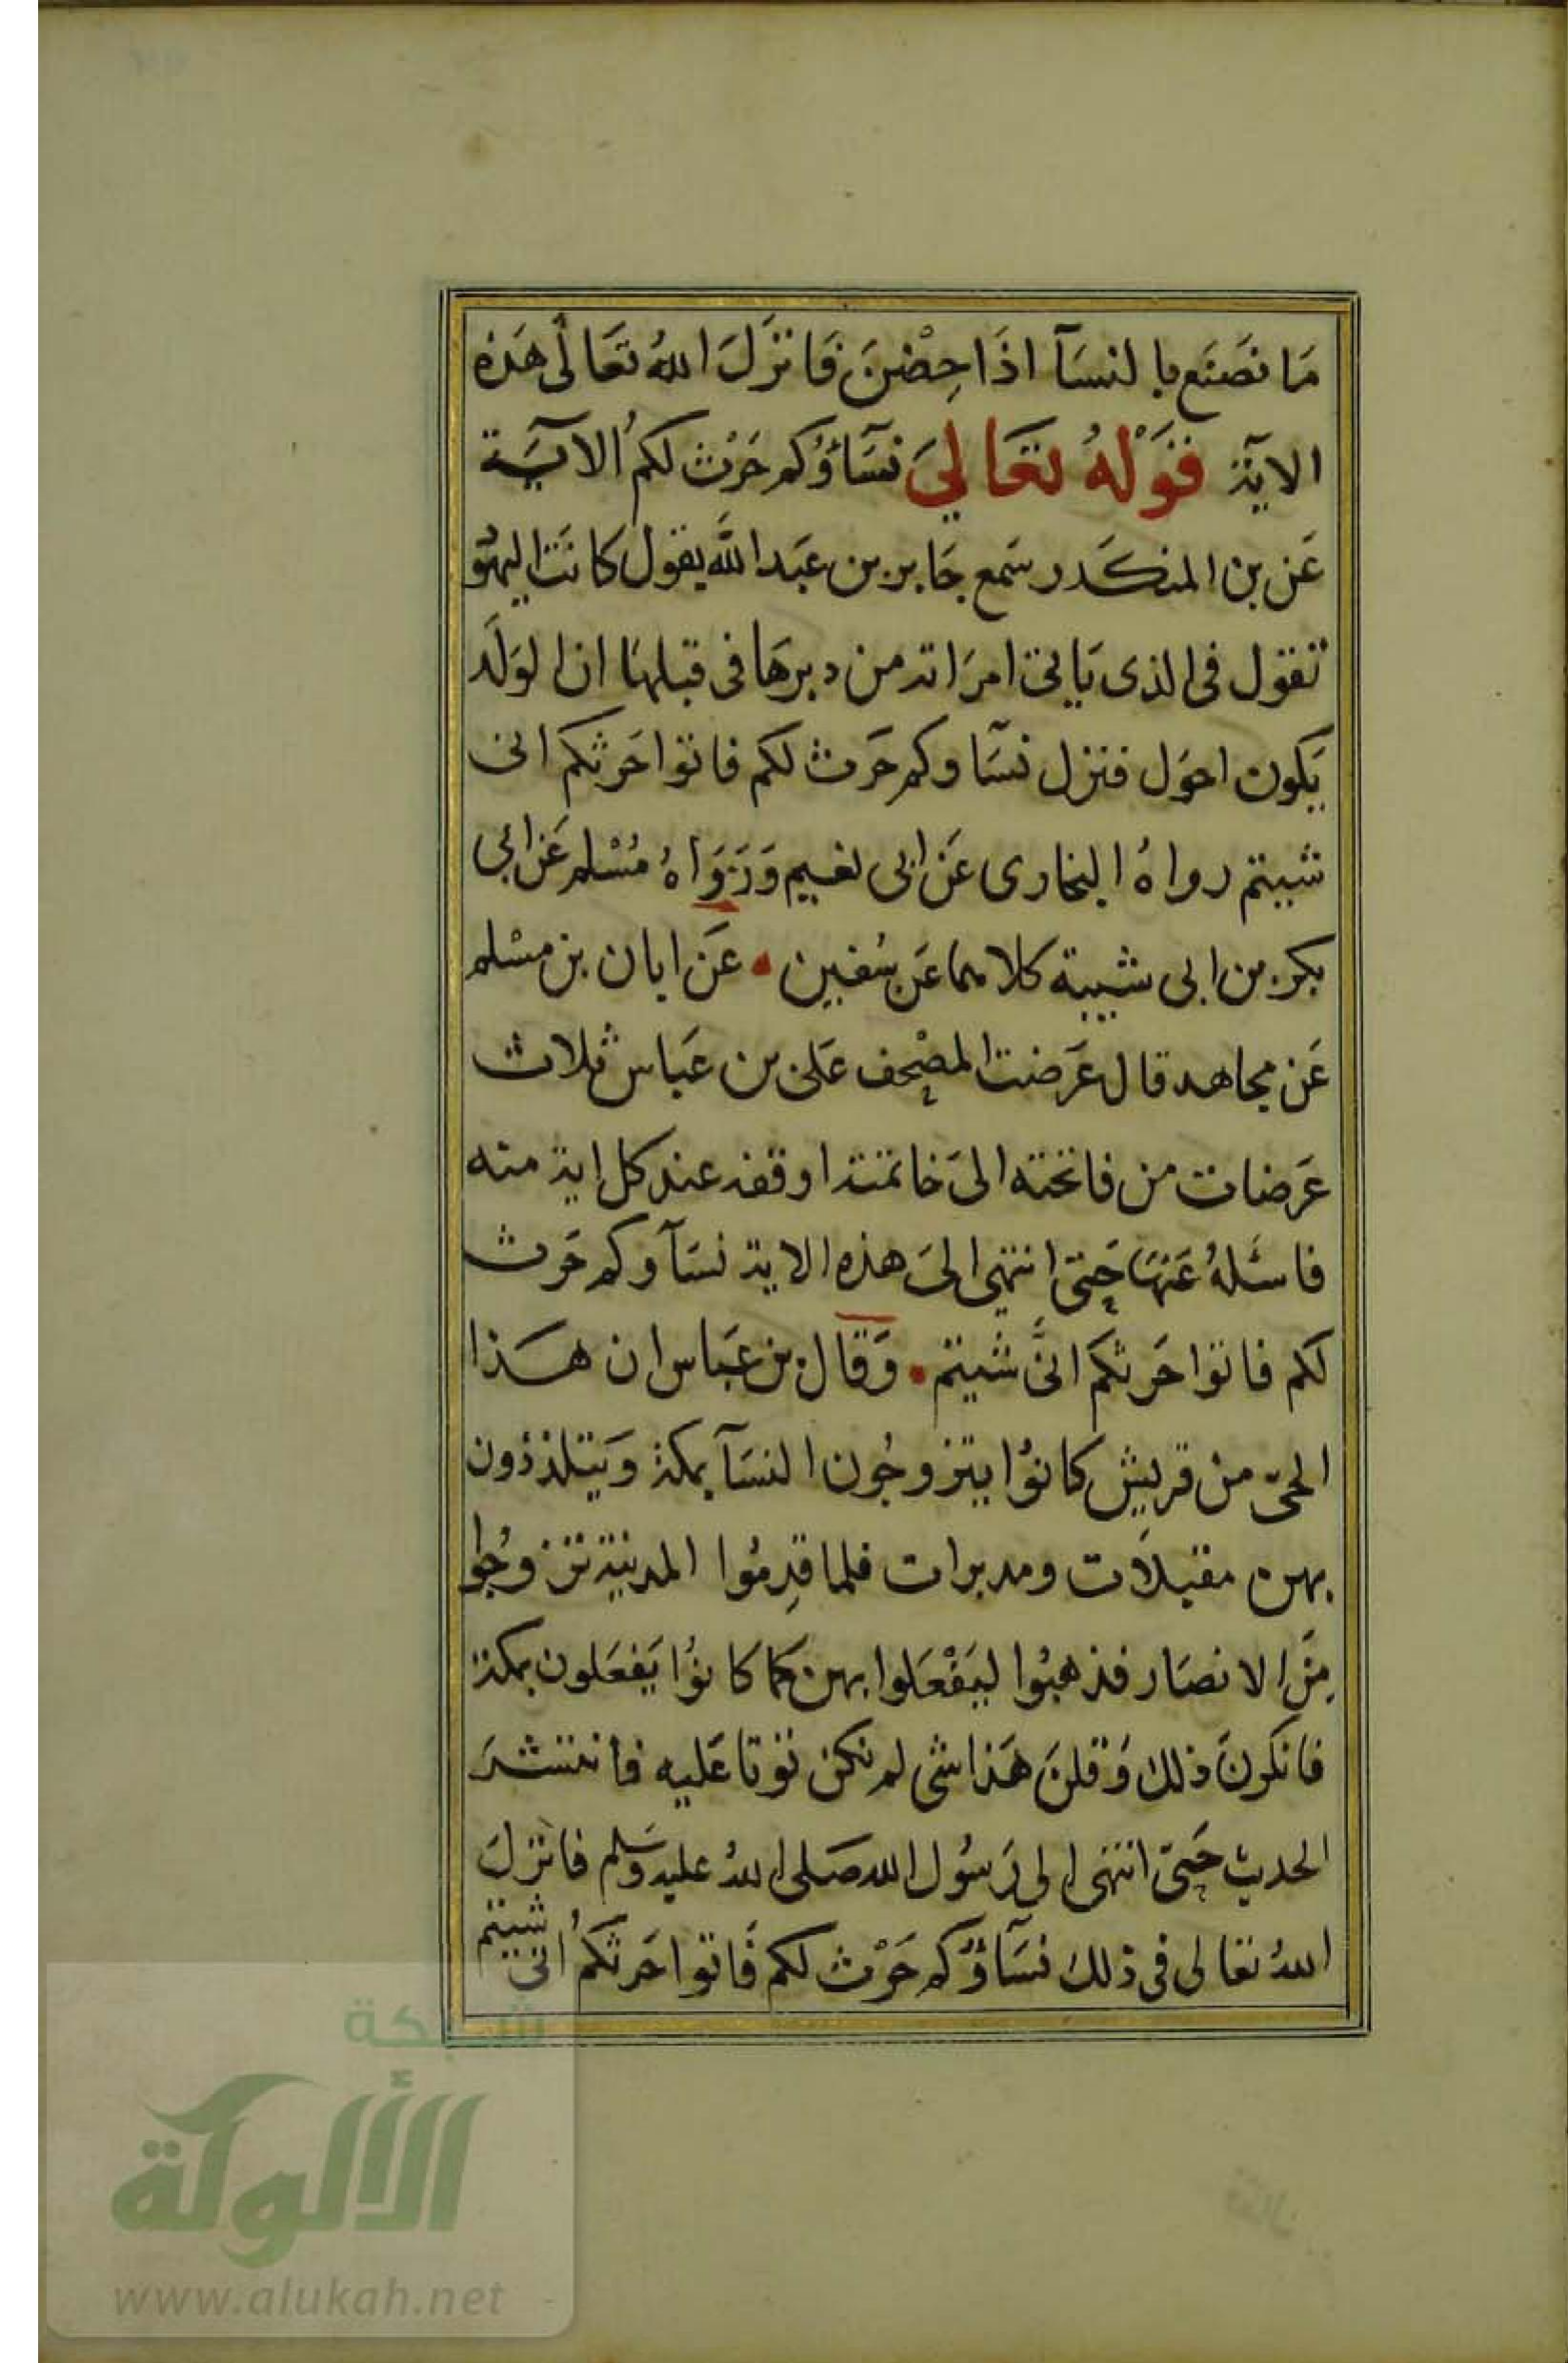 مَا نَصَنَع بالنسَآ اذَا حِضْنَ فَانزَلَ اللهُ تعَالٰى هَذه
الايَة قَوْلهُ تعَالىَ نسَآؤُكم حَرْث لكمُ الآيَة
عَن بن المنكَدر سَمع جَابر بن عَبد اللَّه يقول كانَت اليهُو
تقول فى الذى يَاتى امرَاته من دبرهَا فى قبلهَا ان الولَد
يَكون احوَل فنزل نسَآوكم حَرث لكم فاتوا حَرثكم انى
شيتم رواهُ البخارى عَن ابى نعيم وَرَوَاهُ مُسْلم عَن ابى
بكر بن ابى شيبة كلاهما عَن سُفين • عَن ابان بن مسْلم
عَن مجاهد قال عَرَضت المصْحف عَلى بن عَباس ثلاث
عَرضات من فاتحته الىَ خاتمته اوقفه عند كل اية منه
فاسئَلهُ عَنهَا حَتى انتهى الىَ هذه الاية نسَآوكم حَرث
لكم فاتوا حَرثكم انىَّ شيتم • وَقال بن عَباس ان هَذا
الحىّ من قريش كانوُا يتزوجُون النسَآ بمكة وَيَتلذذون
بهن مقبلاَت ومدبرات فلما قدِمُوا المدينة تزوجُوا
مِنَ الانصَار فذهبُوا ليَفْعَلوا بهن كما كانوُا يَفعَلون بمكة
فانكرنَ ذلك وَقلنَ هَذا شى لم نكن نوتا عَليه فانتشرَ
الحديث حَتى انتهى الى رَسُول الله صَلى اللهُ عليه وَسَلم فانزلَ
اللهُ تعالى فى ذلك نسَآؤُكم حَرْث لكم فَاتوا حَرثكمُ انى شيتم
شبكة
الألوكة
www.alukah.net